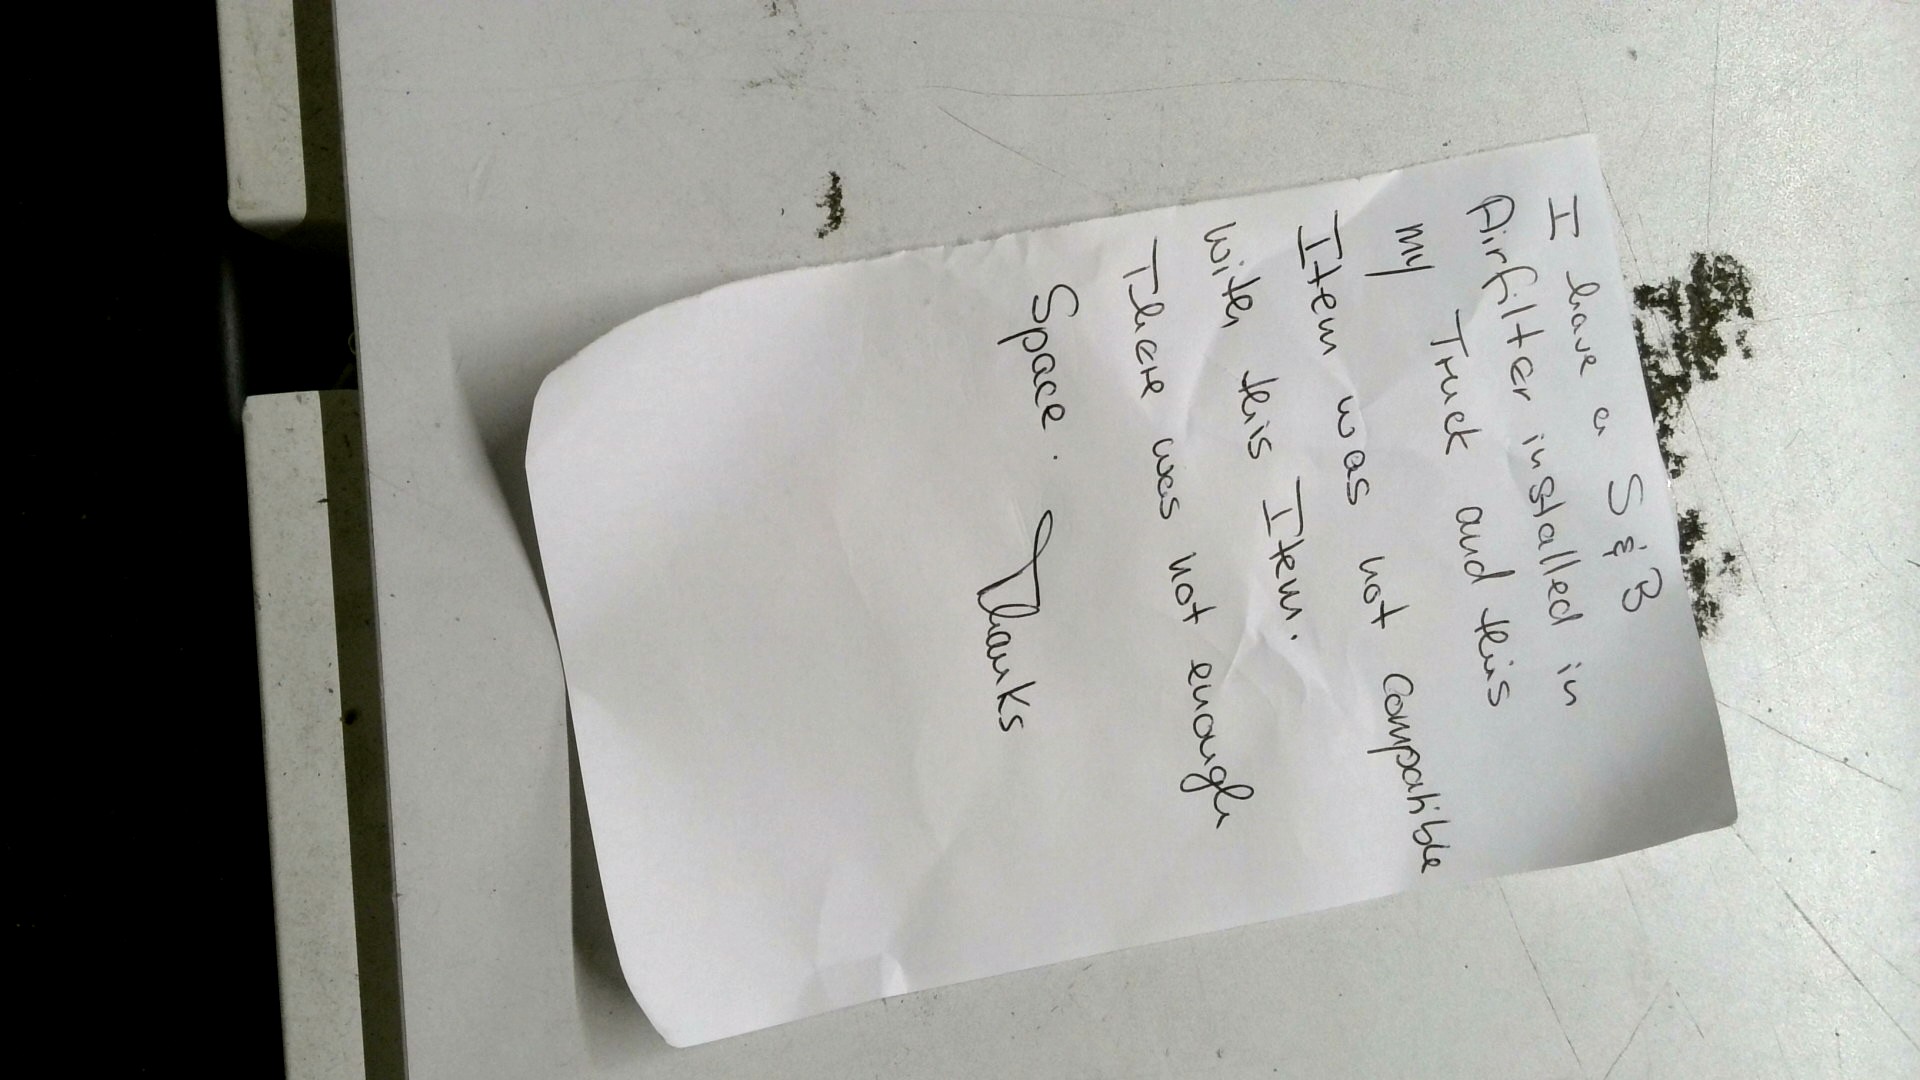 I have a S & B
Airfilter installed in
my Truck and this
Item was not compatible
with this Item.
There was not enough
Space. Thanks